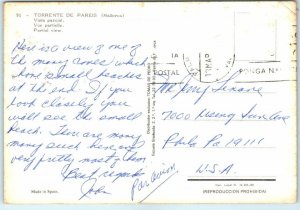 TORRENTE DE PAREIS (Mallorca)
Vista parcial.
Vue partielle.
Partial view.
Here is a view of one of
the many coves which
have small beaches
at the end. If you
look closely you
will see the small
beach. There are many
many such here and
very pretty most of them.
Best regards
John
POSTAL
PONGA
Mr
7000
Phila Pa 19111
U.S.A.
Par avion
Made in Spain
(REPRODUCCION PROHIBIDA)